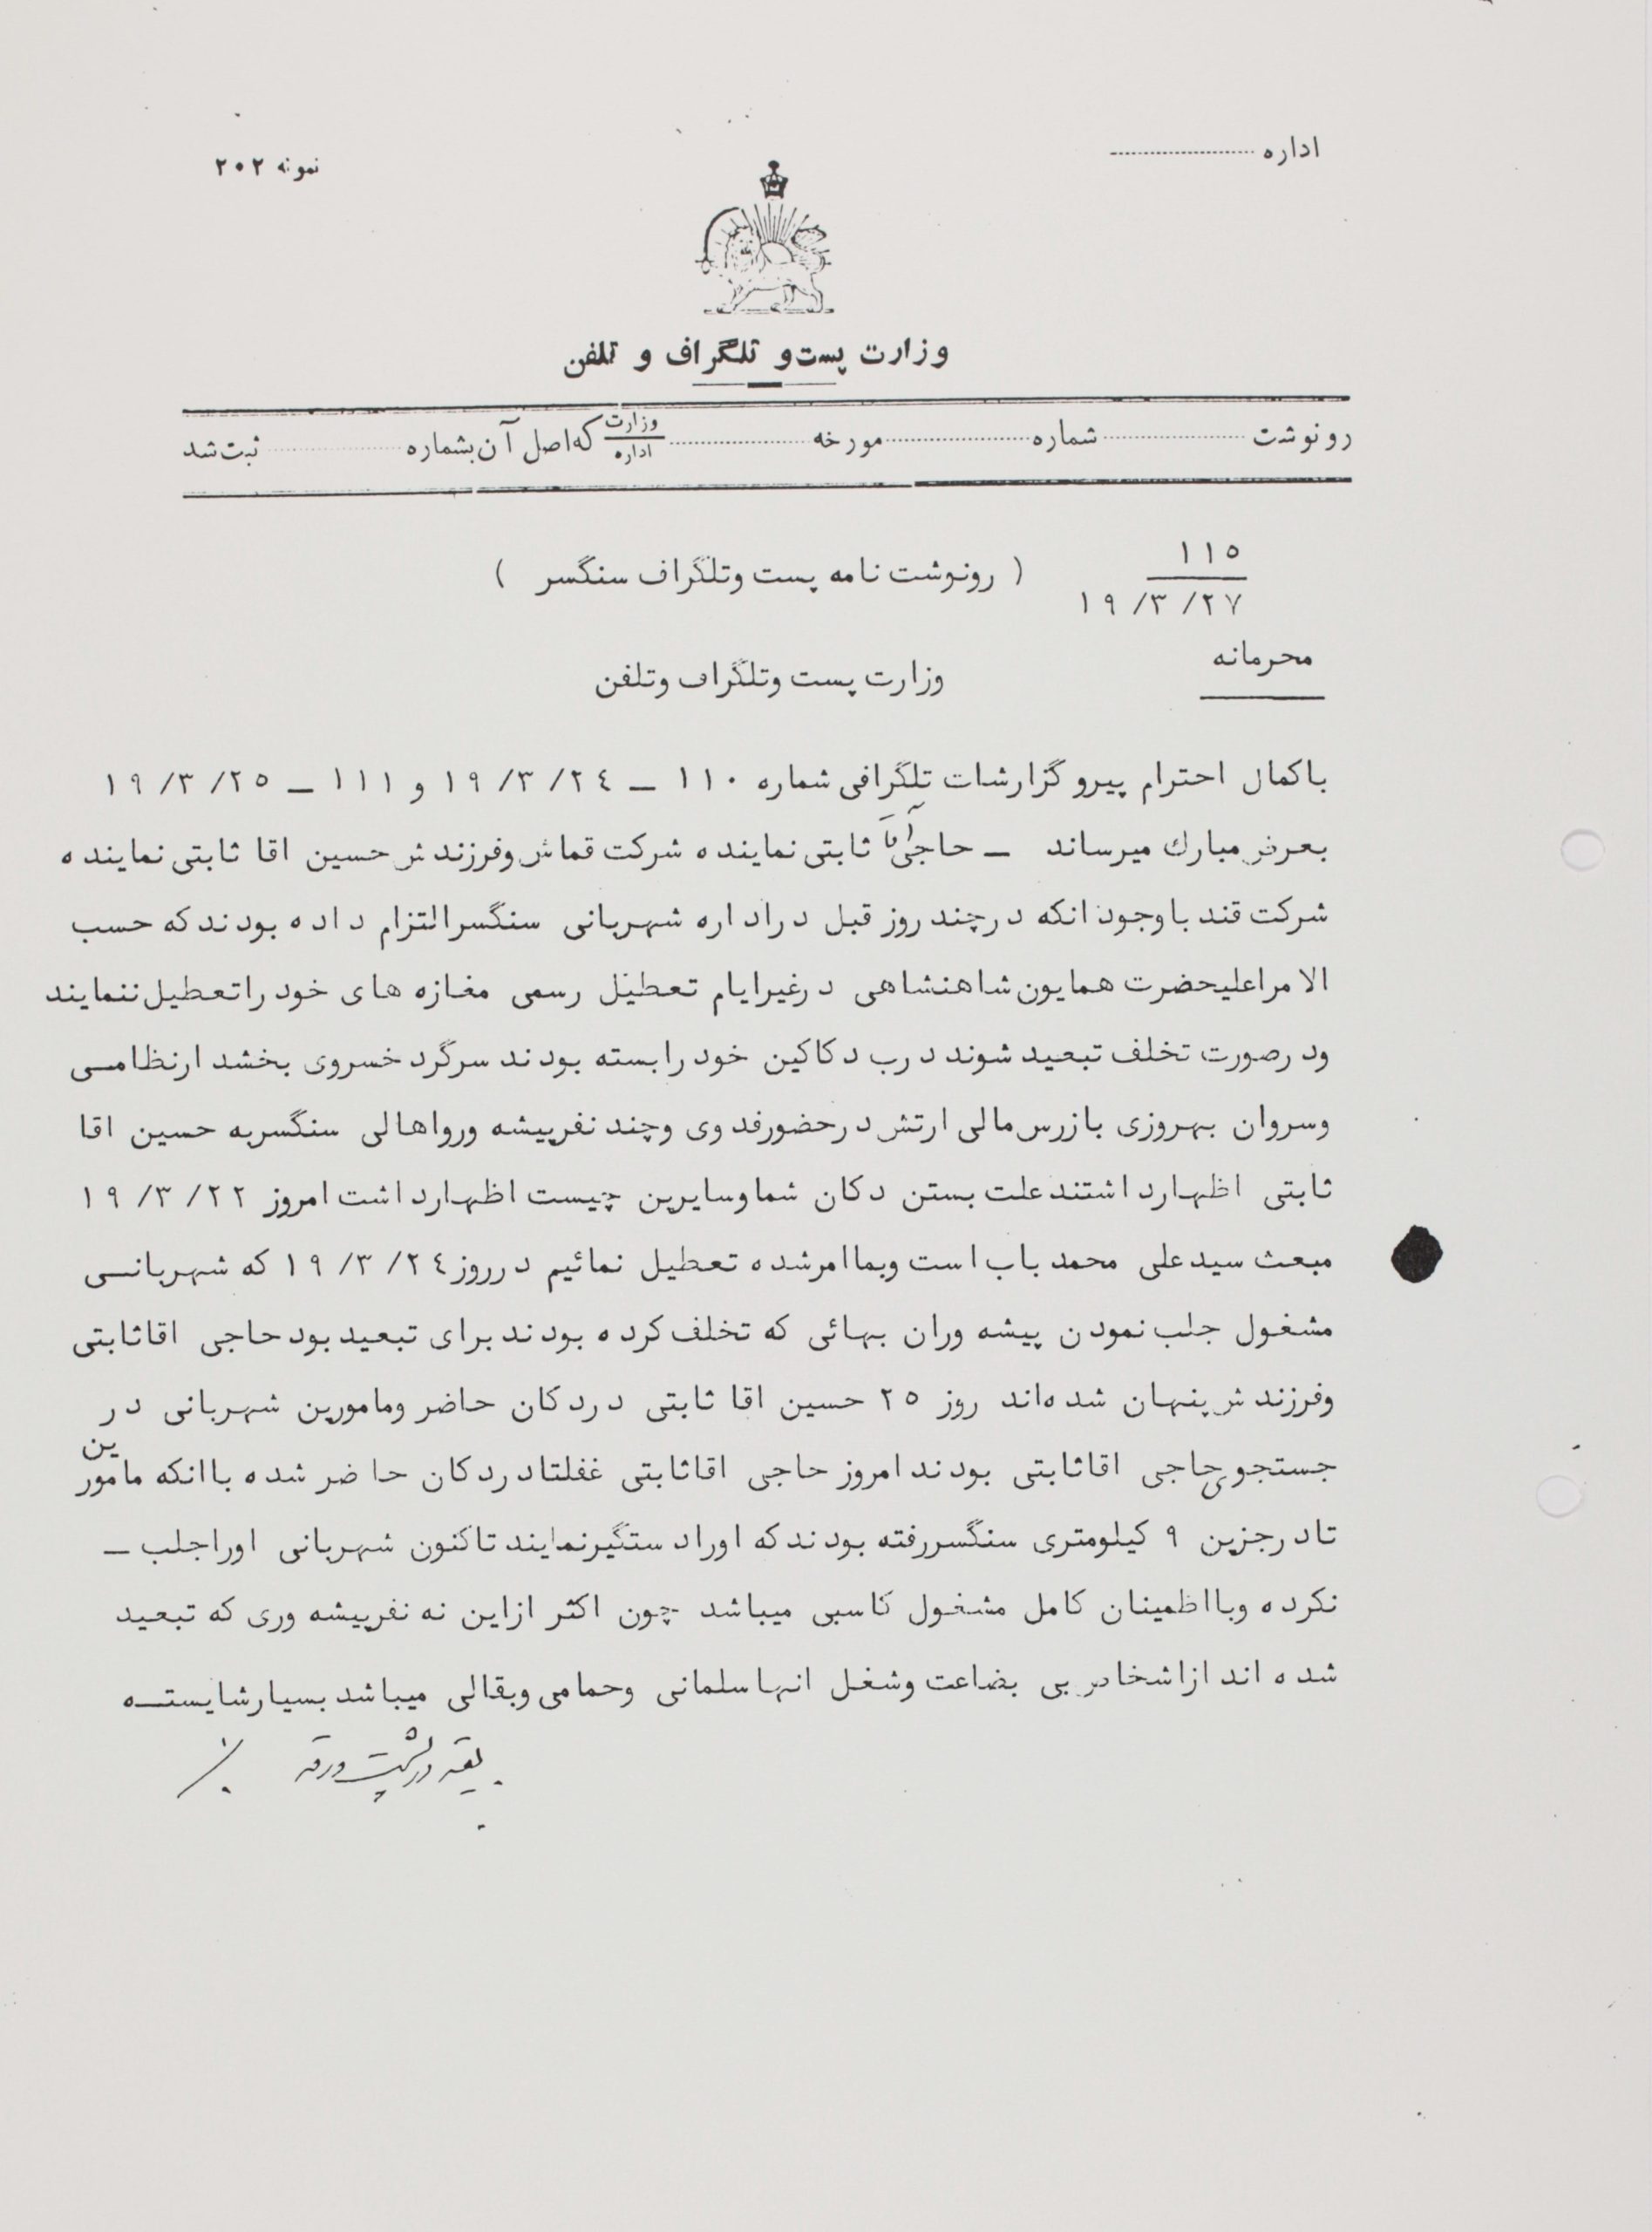 اداره
نمونه ۲۰۲
وزارت پست و تلگراف و تلفن
رونوشت شماره مورخه وزارت اداره که اصل آن بشماره ثبت شد
۱۱۵
۱۹/۳/۲۷
( رونوشت نامه پست وتلگراف سنگسر )
محرمانه
وزارت پست وتلگراف وتلفن
باکمال احترام پیرو گزارشات تلگرافی شماره ۱۱۰ ــ ۱۹/۳/۲۴ و ۱۱۱ ــ ۱۹/۳/۲۵
بعرض مبارك میرساند ــ حاجی آقا ثابتی نماینده شرکت قماش وفرزندش حسین اقا ثابتی نماینده
شرکت قند باوجود انکه درچند روز قبل دراداره شهربانی سنگسر التزام داده بودند که حسب
الامر اعلیحضرت همایون شاهنشاهی درغیر ایام تعطیل رسمی مغازه های خود را تعطیل ننمایند
ودرصورت تخلف تبعید شوند درب دکاکین خود را بسته بودند سرگرد خسروی بخشد ارنظامی
وسروان بهروزی بازرس مالی ارتش درحضور فدوی وچند نفر پیشه ورو اهالی سنگسر به حسین اقا
ثابتی اظهار داشتند علت بستن دکان شما وسایرین چیست اظهار داشت امروز ۱۹/۳/۲۲
مبعث سید علی محمد باب است وبما امر شده تعطیل نمائیم درروز ۱۹/۳/۲۴ که شهربانی
مشغول جلب نمودن پیشه وران بهائی که تخلف کرده بودند برای تبعید بود حاجی اقا ثابتی
وفرزندش پنهان شده‌اند روز ۲۵ حسین اقا ثابتی دردکان حاضر ومامورین شهربانی در
جستجوی حاجی اقا ثابتی بودند امروز حاجی اقا ثابتی غفلتا دردکان حاضر شده با انکه مامورین
تا درجزین ۹ کیلومتری سنگسر رفته بودند که اورا دستگیر نمایند تاکنون شهربانی اورا جلب ــ
نکرده وبا اظمینان کامل مشغول کاسبی میباشد چون اکثر ازاین نه نفر پیشه وری که تبعید
شده اند از اشخاص بی بضاعت وشغل انها سلمانی وحمامی وبقالی میباشد بسیار شایسته
بقیه در پشت ورقه